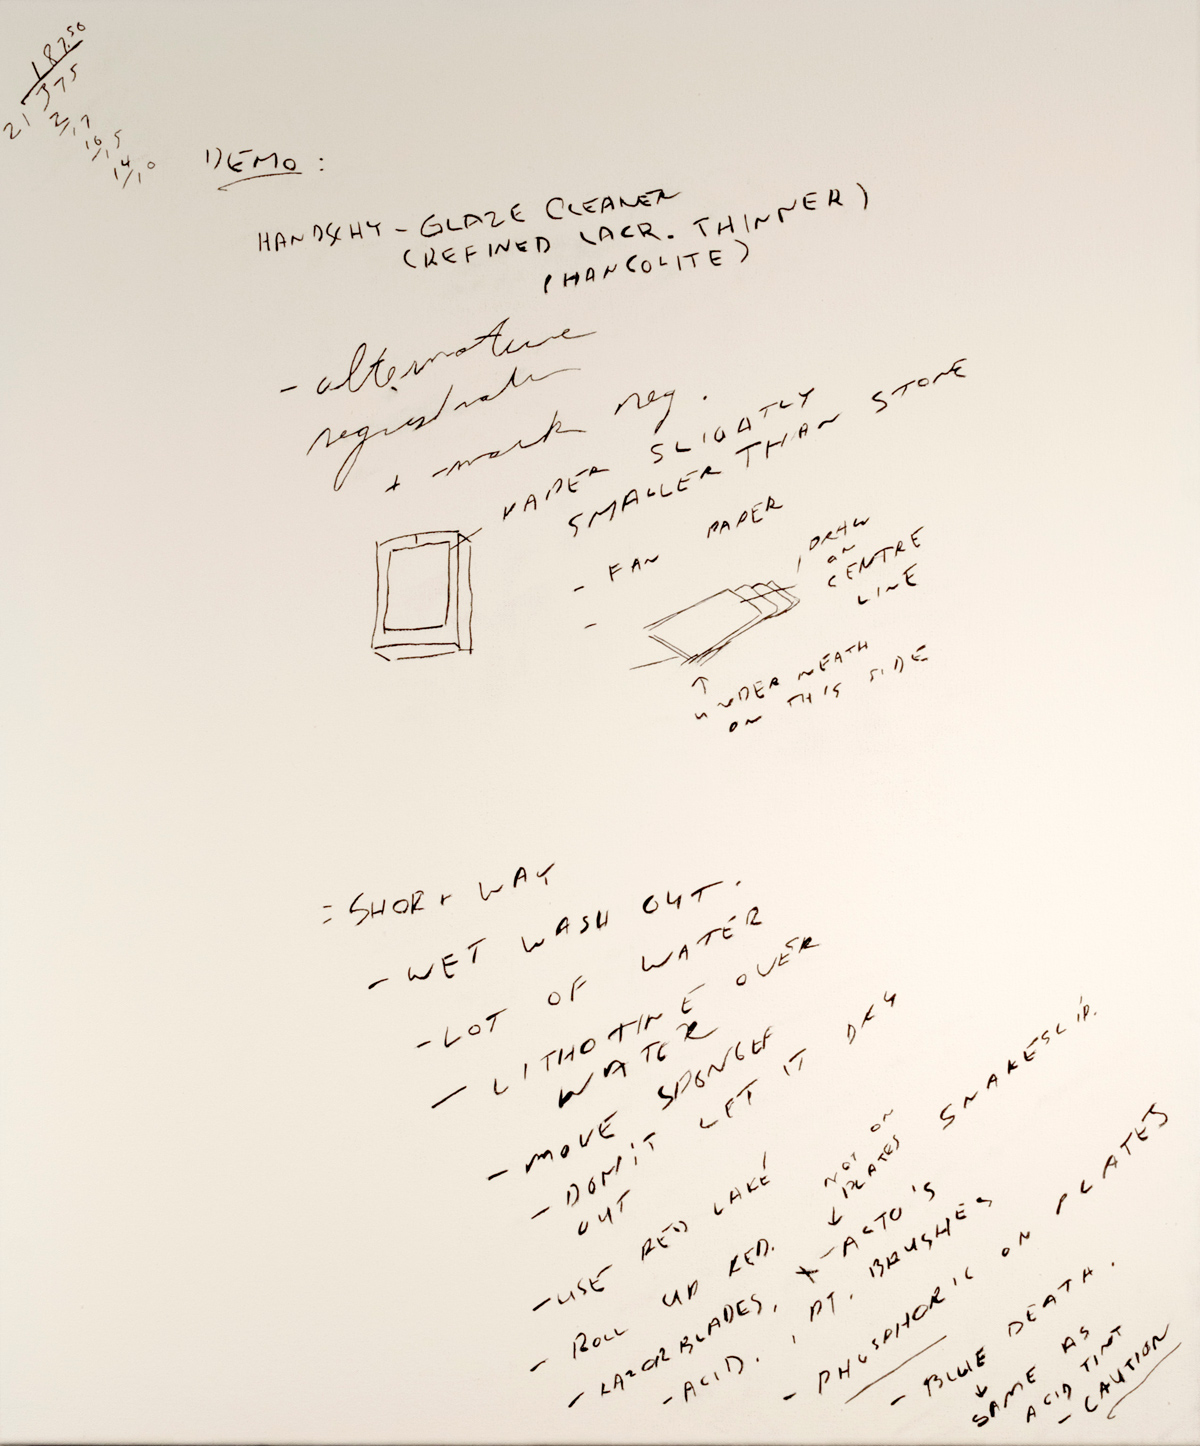 187.50
2)375
21
2/17
16/15
14/10
DEMO:
HANDSCHY - GLAZE CLEANER
(REFINED LACR. THINNER)
HANCOLITE)
- alternative
registration
+ mark neg.
PAPER SLIGATLY
SMALLER THAN STONE
- FAN PAPER
-
DRAW
ON
CENTRE
LINE
↑
UNDER NEATH
ON THIS SIDE
= SHORT WAY
- WET WASH OUT.
- LOT OF WATER
- LITHOTINE OVER
WATER
- MOVE SPONGE
- DON'T LET IT DRY
OUT
- USE RED LAKE
- ROLL UP RED.
NOT ON
↓ PLATES
SNAKESLIP.
- RAZOR BLADES, X-ACTO'S
- ACID. , PT. BRUSHES
- PHOSPHORIC ON PLATES
- BLUE DEATH.
↓
SAME AS
ACID TINT
- CAUTION